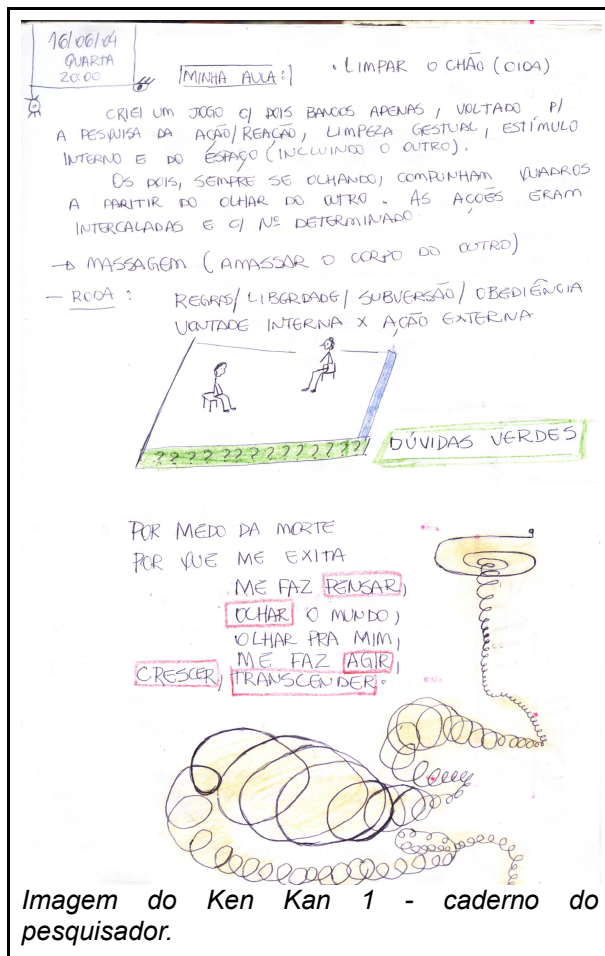 16/06/04
QUARTA
20:00
MINHA AULA:
• LIMPAR O CHÃO (OIDA)
CRIEI UM JOGO C/ DOIS BANCOS APENAS, VOLTADO P/
A PESQUISA DA AÇÃO/REAÇÃO, LIMPEZA GESTUAL, ESTÍMULO
INTERNO E DO ESPAÇO (INCLUINDO O OUTRO).
OS DOIS, SEMPRE SE OLHANDO, COMPUNHAM QUADROS
A PARITIR DO OLHAR DO OUTRO. AS AÇÕES ERAM
INTERCALADAS E C/ Nº DETERMINADO.
→ MASSAGEM (AMASSAR O CORPO DO OUTRO)
- RODA: REGRAS/LIBERDADE/SUBVERSÃO/OBEDIÊNCIA
VONTADE INTERNA X AÇÃO EXTERNA
????????????????
DÚVIDAS VERDES
POR MEDO DA MORTE
POR QUE ME EXITA
ME FAZ PENSAR,
OLHAR O MUNDO,
OLHAR PRA MIM,
ME FAZ AGIR,
CRESCER, TRANSCENDER.
Imagem do Ken Kan 1 - caderno do
pesquisador.